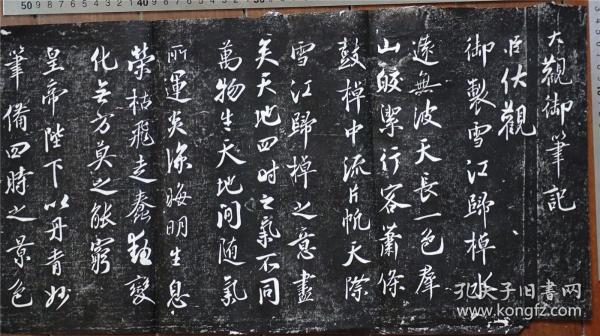 大觀御筆記
臣伏觀
御製雪江歸棹水
遠無波天長一色群
山皎潔行客蕭條
鼓棹中流片帆天際
雪江歸棹之意盡
矣天地四时之氣不同
萬物生天地间随氣
所運炎涼晦明生息
榮枯飛走蠢動變
化无方莫之能窮
皇帝陛下以丹青妙
筆備四時之景色
孔夫子旧书网
www.kongfz.com